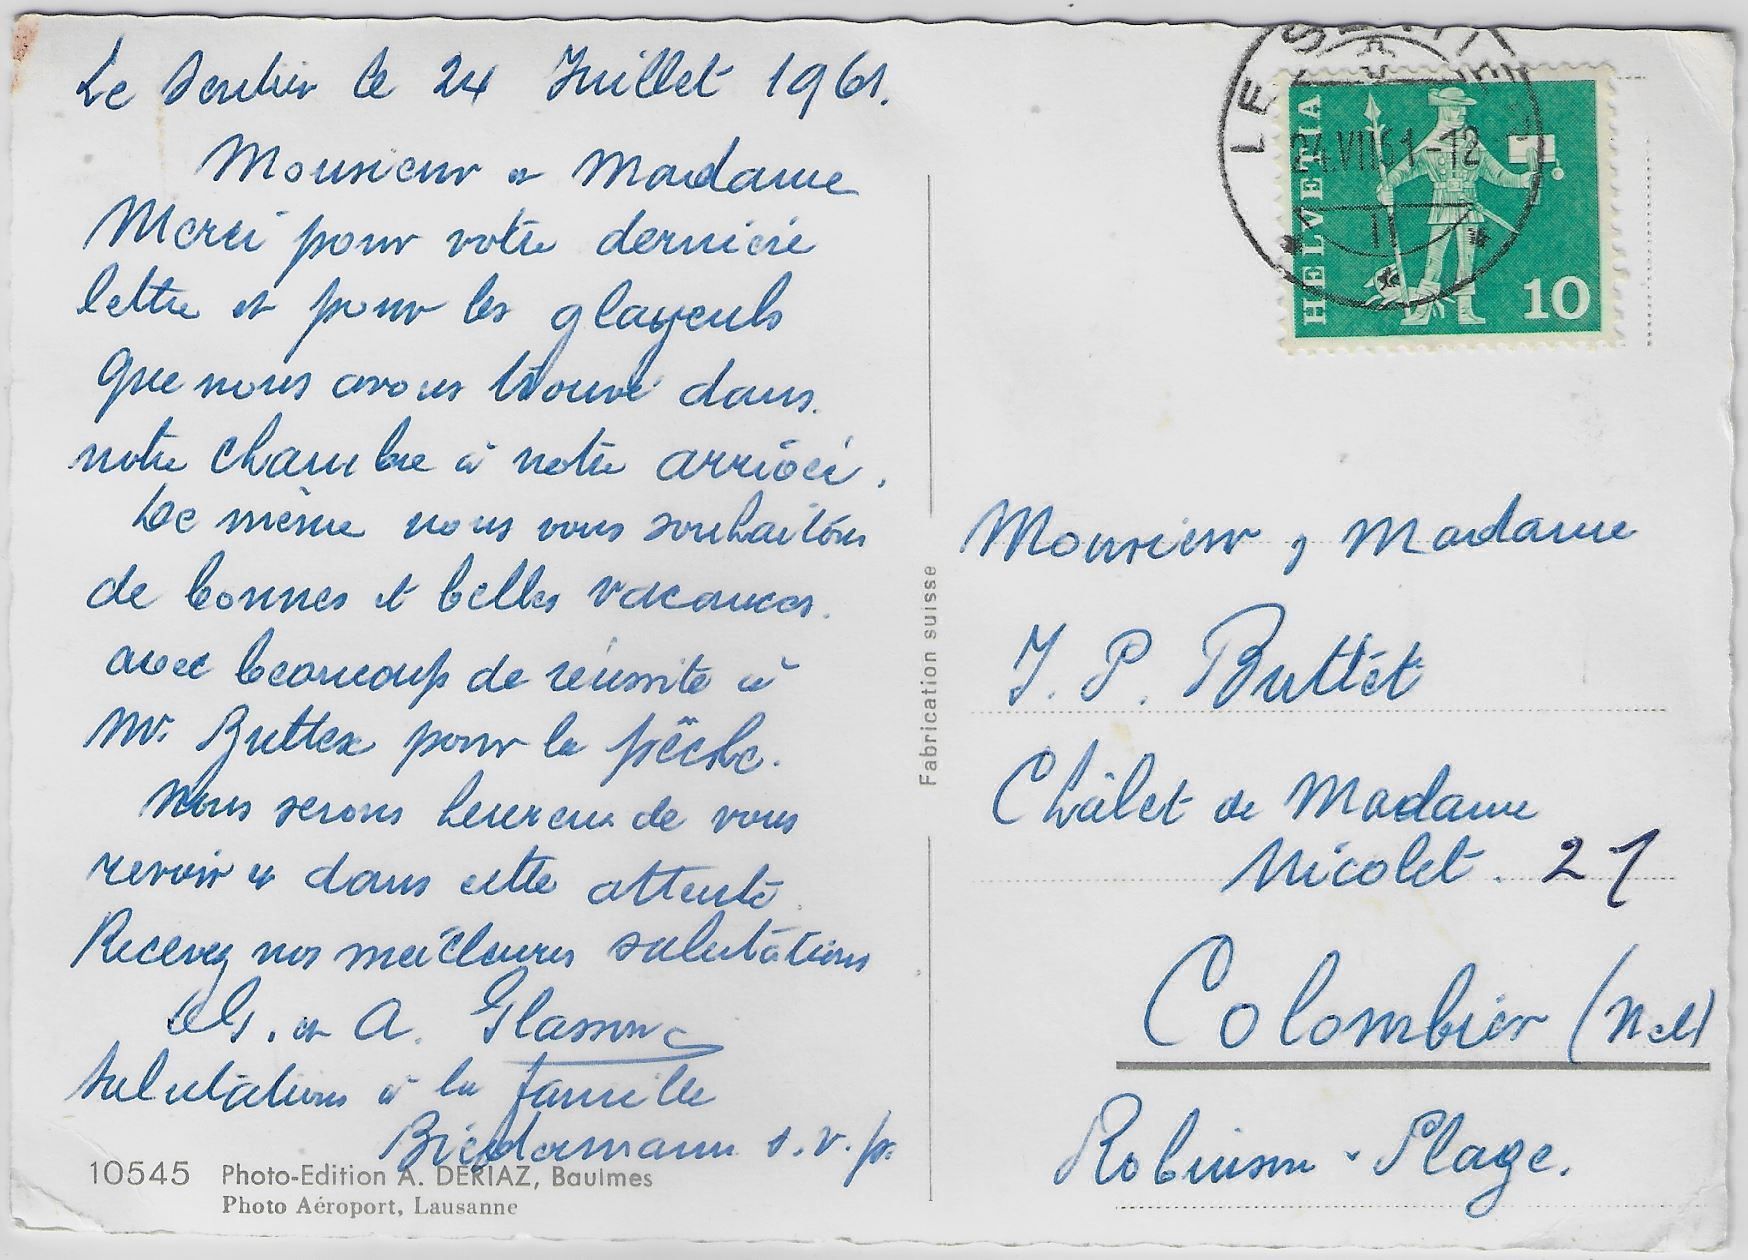 Le Sentier le 24 Juillet 1961.
Monsieur et Madame
Merci pour votre dernière
lettre et pour les glayeuls
que nous avons trouvé dans
notre chambre à notre arrivée.
De même nous vous souhaitons
de bonnes et belles vacances.
avec beaucoup de réussite à
Mr. Buttex pour la pêche.
Nous serons heureux de vous
revoir et dans cette attente
Recevez nos meilleures salutations
et A. Glasson
Salutations à la famille
Biedermann s.v.p.
10545 Photo-Edition A. DERIAZ, Baulmes
Photo Aéroport, Lausanne
Fabrication suisse
LE SENTIER
24.VII.61-12
HELVETIA
10
Monsieur, Madame
J. P. Buttet
Châlet de Madame
Nicolet. 21
Colombier (Ntel)
Robinson-Plage.